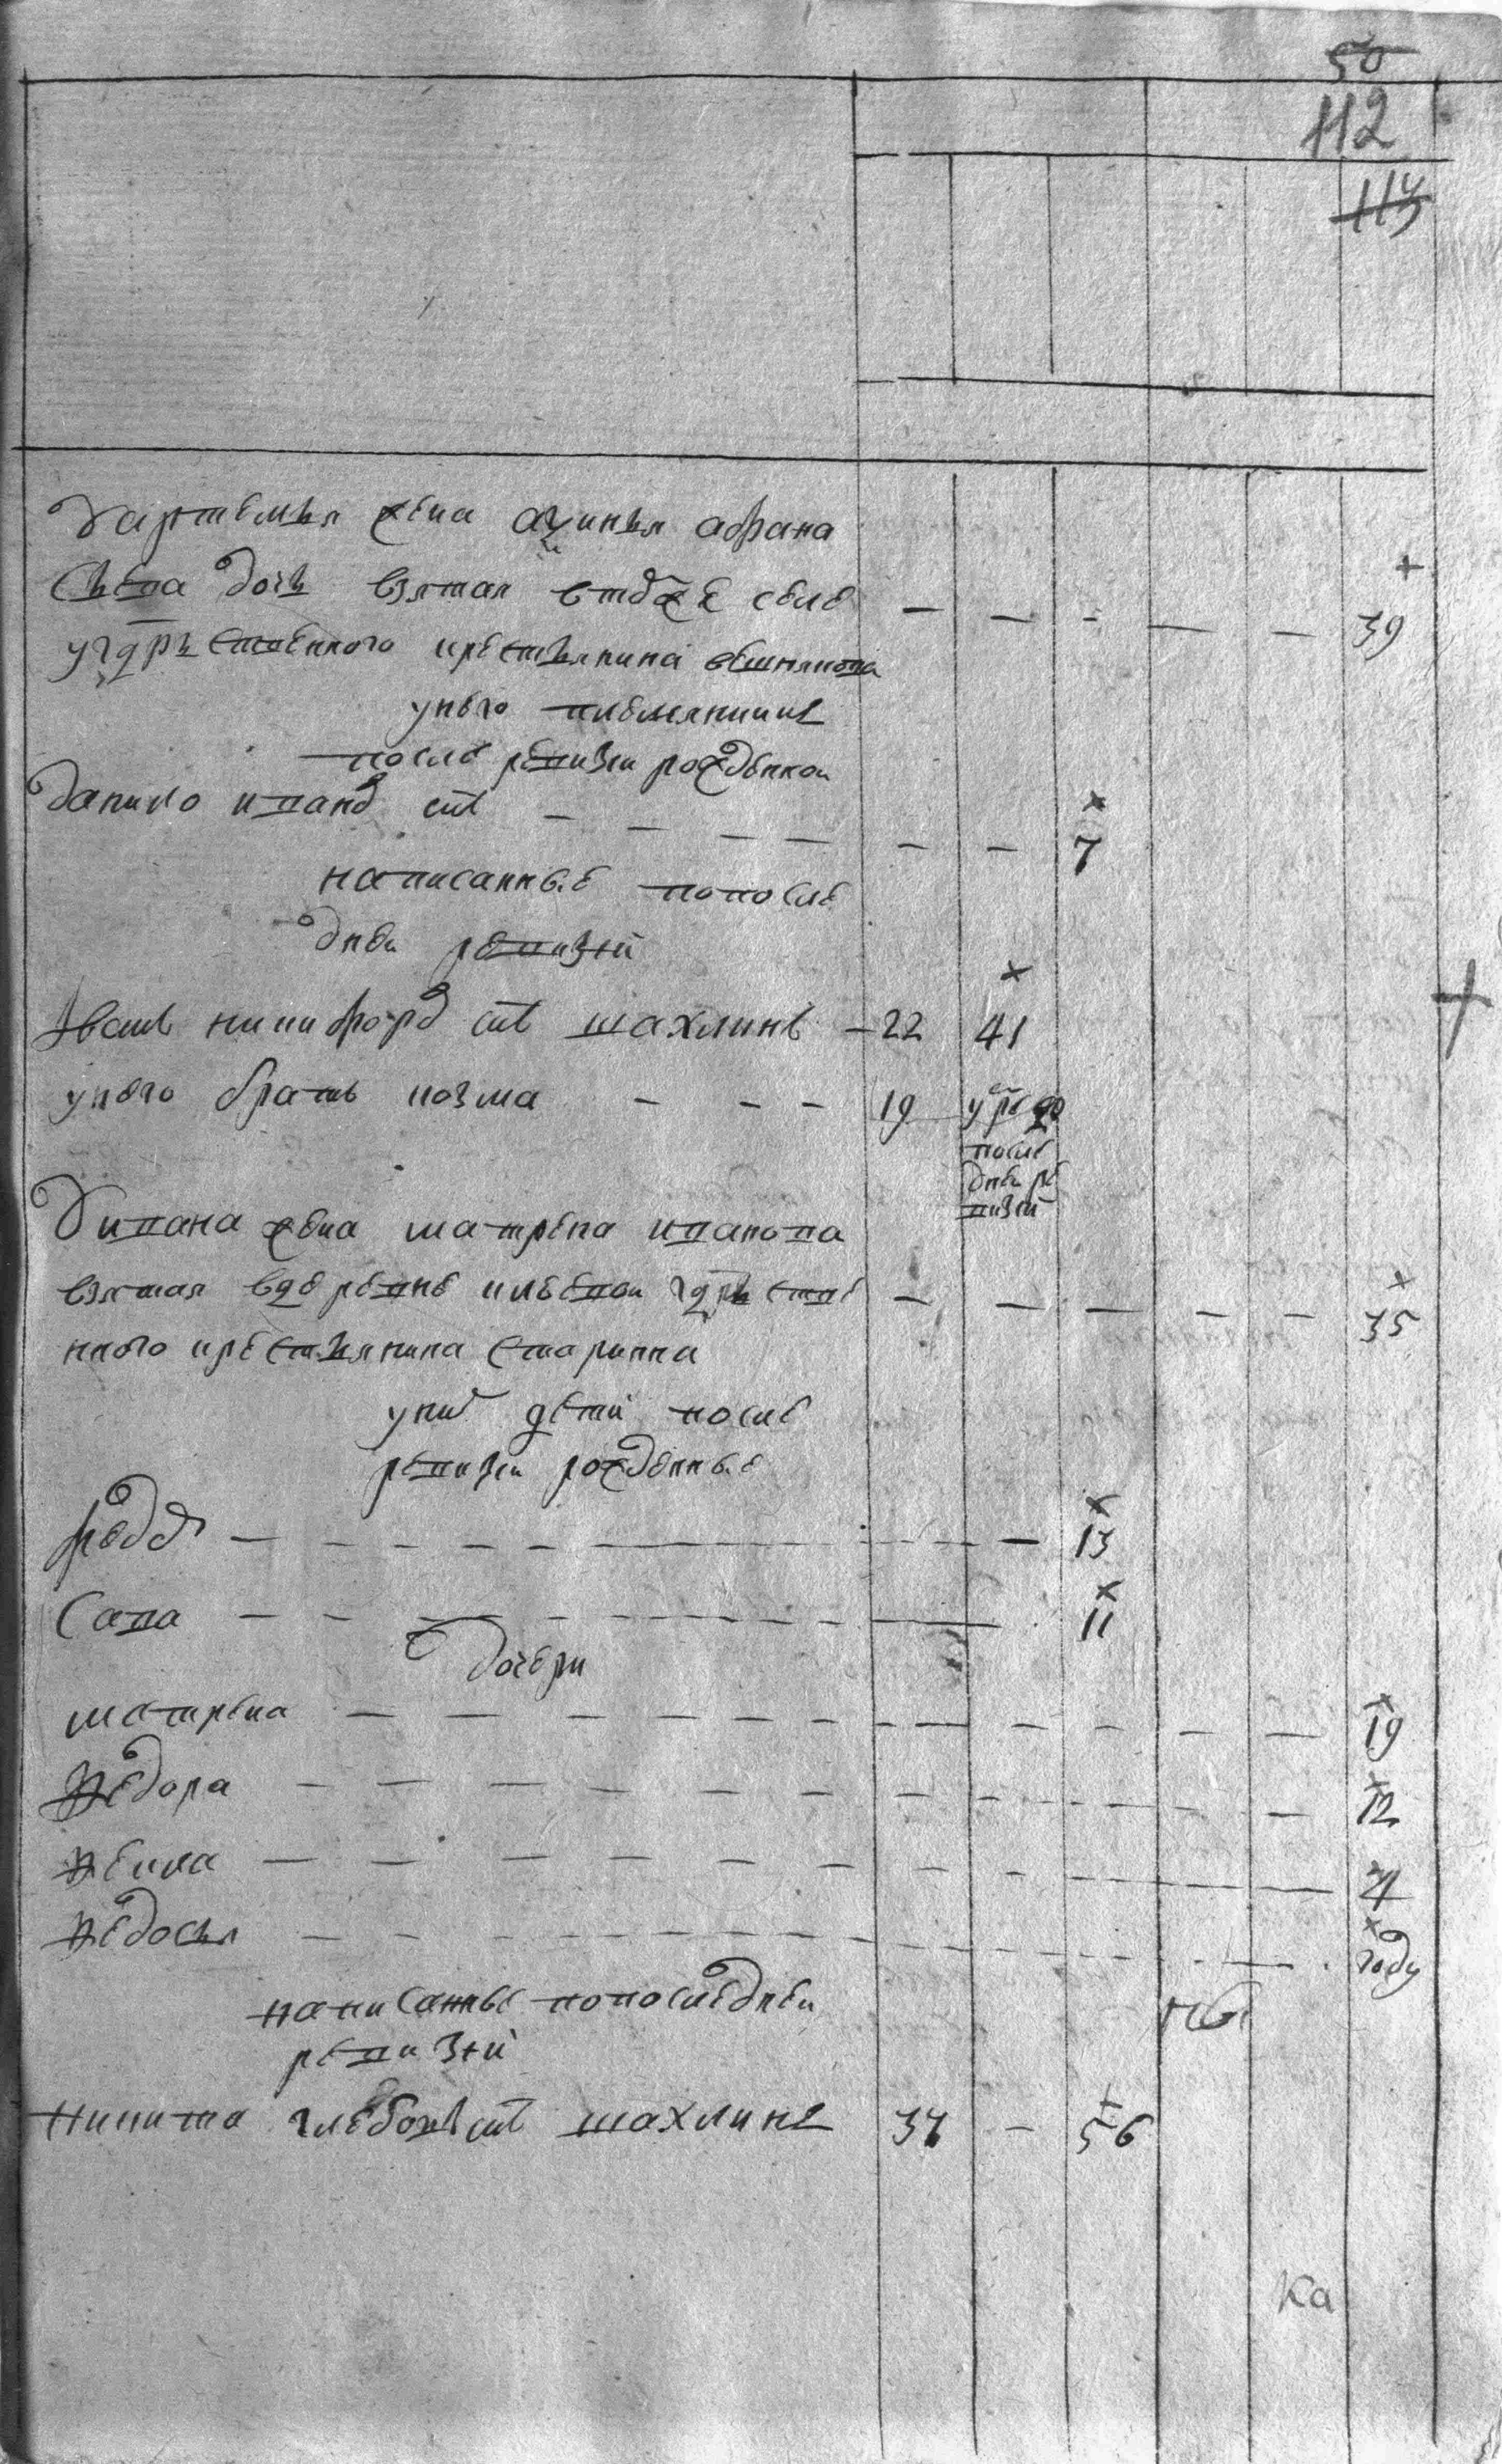 50
112
114
Вартемья жена аѯинья афана
сьева дочь взятая втоже селе — — - — — 39
угдрственного крестьянина вешнякова
унего племянникъ
после ревизи рожденной
данило иванов сн — — — — — — 7
написанные попосле
дней ревизии
Иванъ никифоров снъ шахлинъ — 22 41
унего братъ козма — — — 19
после
дней ре
визии
Уивана жена матрена иванова
взятая вдеревне киевои гдрьстве — — — — — 35
нного крестьянина старикка
уних детеи после
ревизи рожденные
федор — 13
Сава — 11
дочери
матрена — 19
федора — 12
фекла — 4
федосья — году
написанные попоследнеи
ревизии
никита глебовъ снъ шахлинъ 37 — 56
Ка